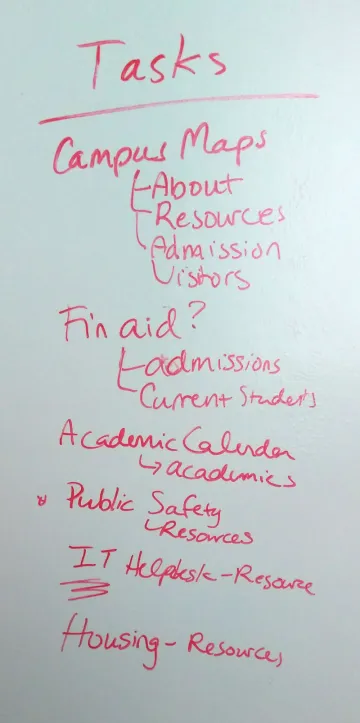 Tasks
Campus Maps
About
Resources
Admission
Visitors
Fin aid?
admissions
Current Students
Academic Calender
academics
Public Safety
Resources
IT Helpdesk - Resource
Housing - Resources